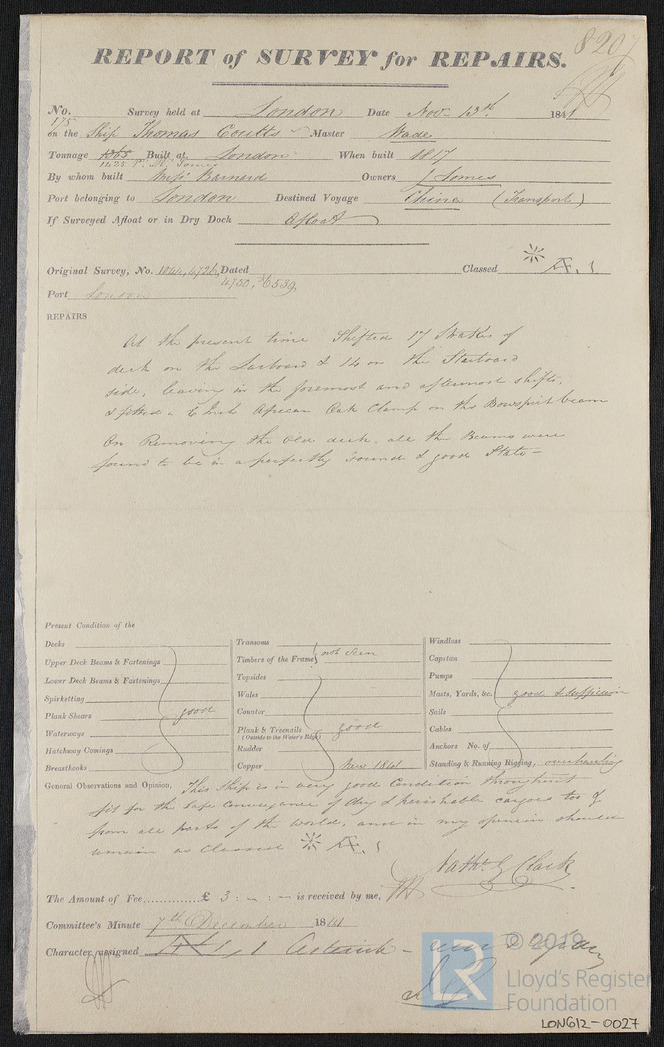 8207
REPORT of SURVEY for REPAIRS.
No. 175 Survey held at London Date Nov. 13th 1841
on the Ship Thomas Coutts Master Wade
Tonnage 1365 Built at London When built 1817
1425
By whom built Barnard Owners J Somes
Port belonging to London Destined Voyage China (Transport)
If Surveyed Afloat or in Dry Dock Afloat
Original Survey, No. 1044, 4726, Dated Classed Æ. 1
4750, 6539
Port London
REPAIRS
At the present time Shifted 17 Strakes of
deck on the Larboard & 14 on the Starboard
side, leaving in the foremost and aftermost shifts,
& fitted a 6 Inch African Oak Clamp on the Bowsprit beam
On Removing the old deck, all the Beams were
found to be in a perfectly sound & good State —
Present Condition of the
Decks
Upper Deck Beams & Fastenings
Lower Deck Beams & Fastenings
Spirketting
Plank Shears good
Waterways
Hatchway Comings
Breasthooks
Transoms
Timbers of the Frame not seen
Topsides
Wales
Counter
Plank & Treenails good
(Outside to the Water's Edge)
Rudder
Copper New 1841
Windlass
Capstan
Pumps
Masts, Yards, &c. good & sufficient
Sails
Cables
Anchors No. of
Standing & Running Rigging, overhauling
General Observations and Opinion, This Ship is in very good Condition throughout
fit for the safe conveyance of dry & perishable cargoes to &
from all parts of the World, and in my opinion should
remain as Classed Æ. 1
Nathl G Clark
The Amount of Fee............ £ 3 : - : - is received by me,
Committee's Minute 7th December 1841
Character assigned Æ 1 Asterisk –
© 2019
LR
Lloyd's Register
Foundation
LON612-0027